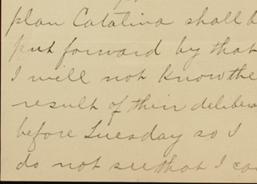 plan Catalina shall b
put forward by that
I will not know the
result of their delibera
before Tuesday so I
do not see that I can